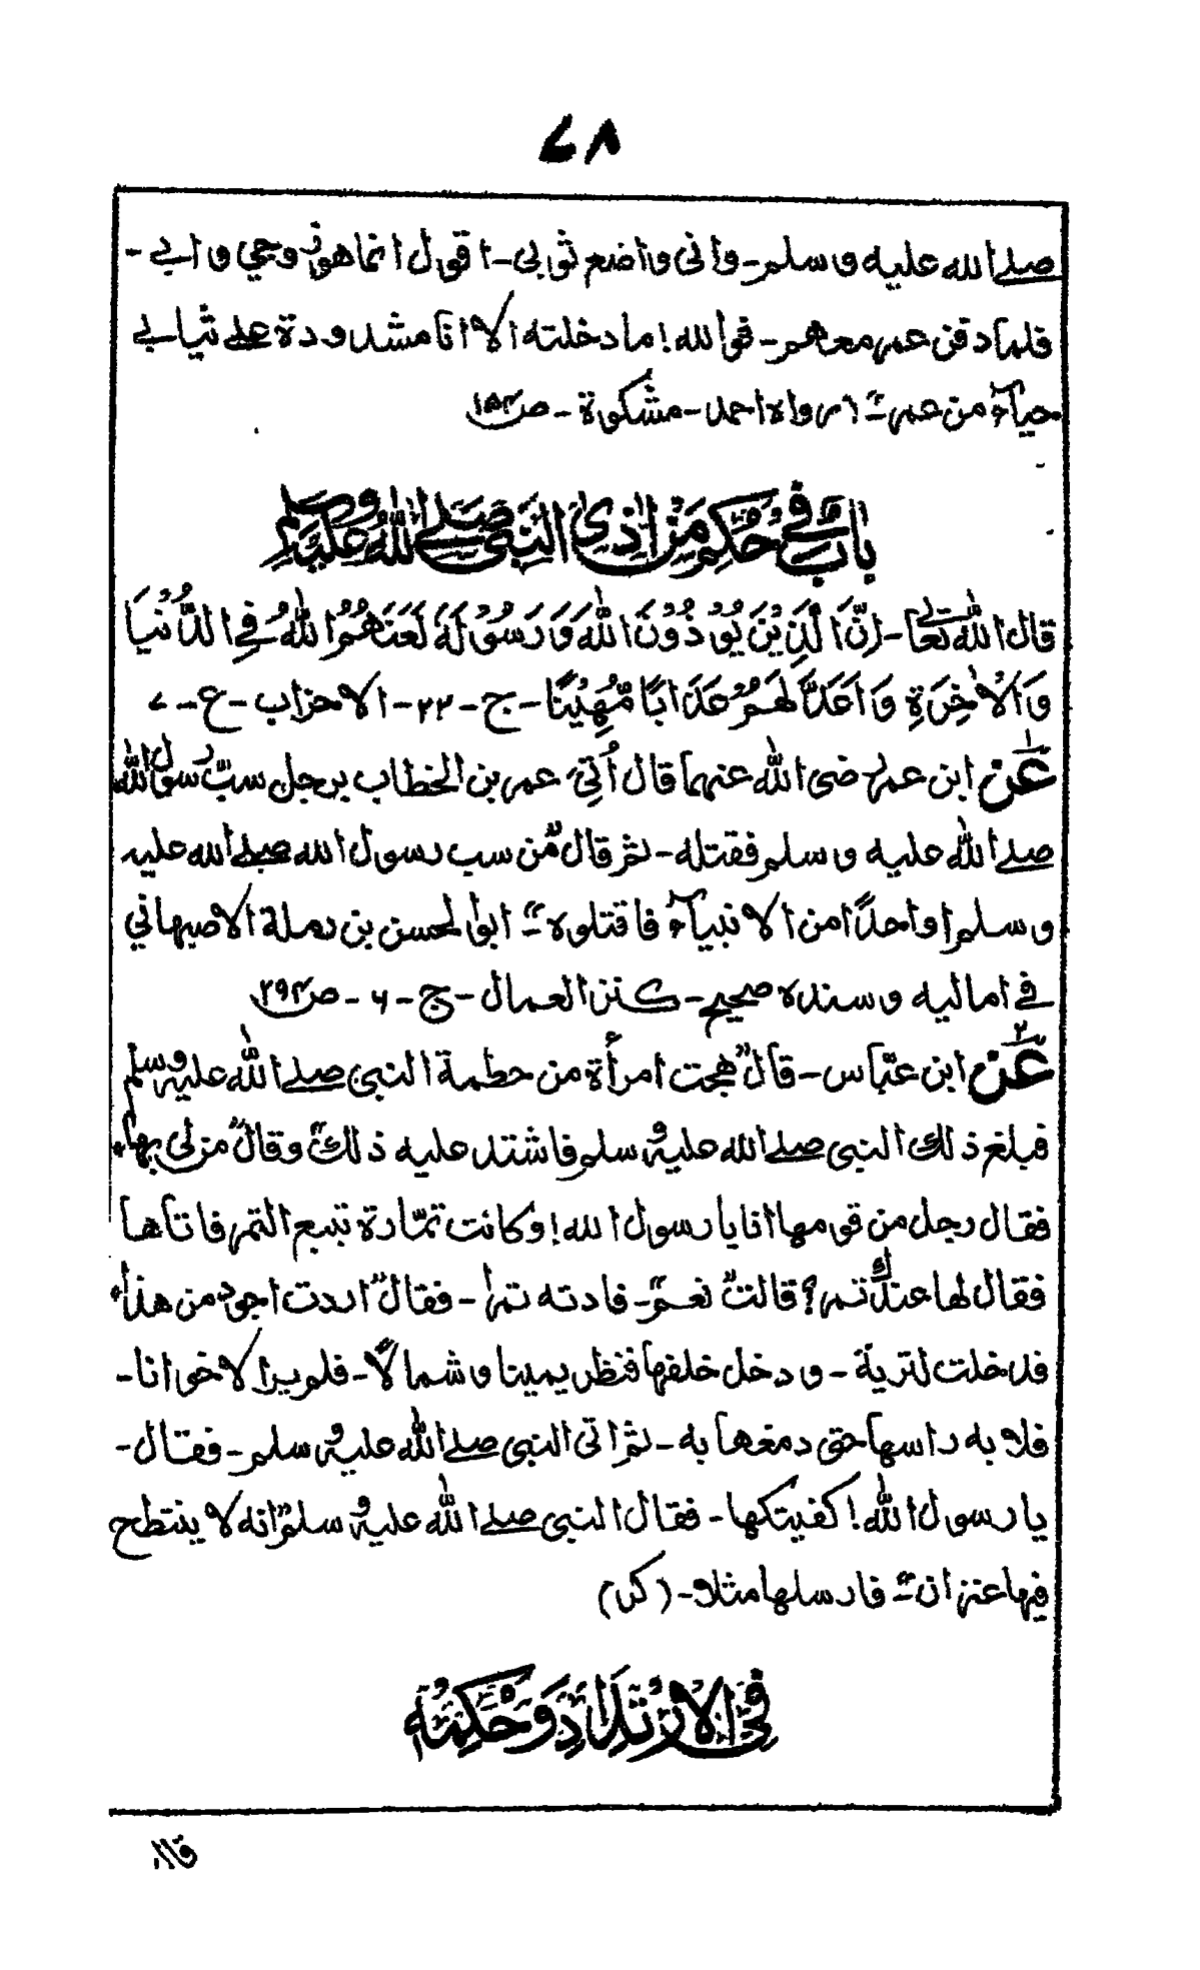 ٧٨
صلے الله عليه وسلم - وانى واضع ثوبى - اقول انما هو زوجي وابے -
فلما دفن عمر معهم - فوالله! ما دخلته الا انا مشدودة علے ثيابے
حياءً من عمر" رواه احمد - مشكوة - ص ١٥٤
باب فے حكم من اذى النبى صلے الله عليه وسلم
قال الله تعالے - اِنَّ الَّذِيْنَ يُؤْذُوْنَ اللهَ وَرَسُوْلَهٗ لَعَنَهُمُ اللهُ فِے الدُّنْيَا
وَالْاٰخِرَةِ وَاَعَدَّ لَهُمْ عَذَابًا مُّهِيْنًا - ج - ٢٢ - الاحزاب - ع - ٧
عن ١ ابن عمر رضى الله عنهما قال اُتِىَ عمر بن الخطاب برجل سبّ رسول الله
صلے الله عليه وسلم فقتله - ثم قال "من سب رسول الله صلے الله عليه
وسلم او احدًا من الانبياء فاقتلوه" ابو الحسن بن رملة الاصبهاني
فے اماليه وسنده صحيح - كنز العمال - ج - ٦ - ص ٢٩٤
عن ٢ ابن عبّاس - قال "هجت امرأة من خطمة النبى صلے الله عليه وسلم
فبلغ ذلك النبى صلے الله عليه وسلم فاشتد عليه ذلك" وقال "من لى بها"
فقال رجل من قومها انا يا رسول الله! وكانت تمّارة تبيع التمر فاتاها
فقال لها عندك تمر؟ قالت "نعم" - فارته تمرا - فقال "اردت اجود من هذا"
فدخلت لتريهٗ - ودخل خلفها فنظر يمينا وشمالاً - فلم ير الا خوانا -
فلا به راسها حتى دمغها به - ثم اتى النبى صلے الله عليه وسلم - فقال -
يا رسول الله! كفيتكها - فقال النبى صلے الله عليه وسلم "انه لا ينتطح
فيها عنزان" فارسلها مثلا - (كر)
فى الارتداد وحكمه
قال